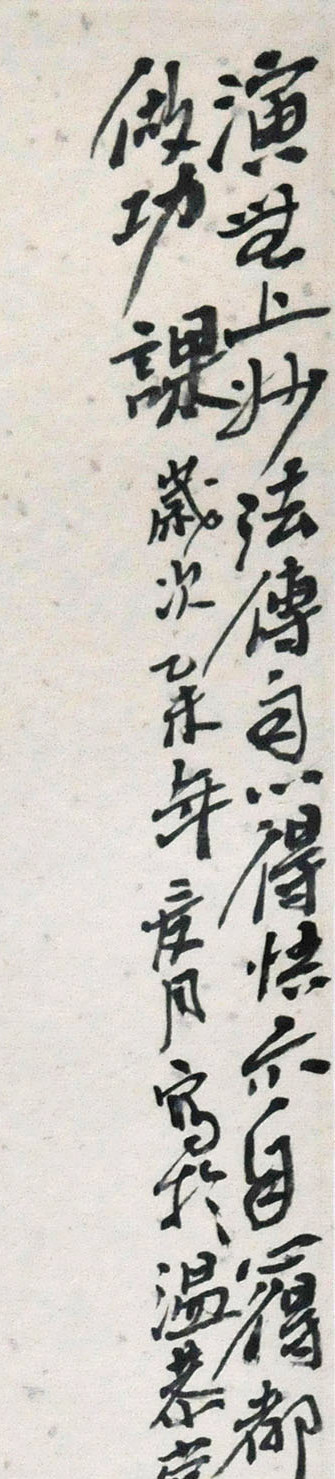 演無上妙法傳自心得悟亦自心得都
做功課歲次乙未年夏月寫於溫恭堂